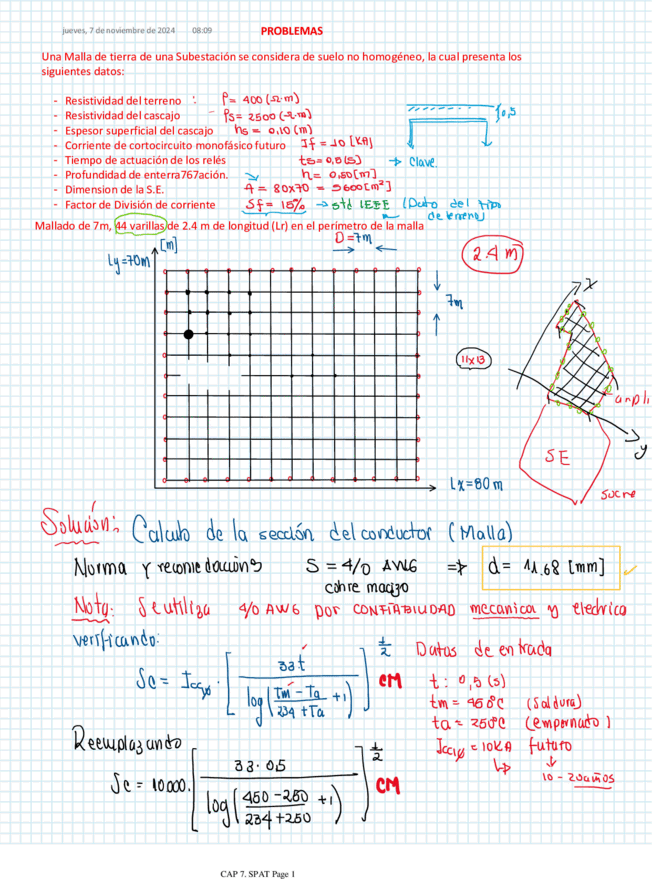 jueves, 7 de noviembre de 2024 08:09
PROBLEMAS
Una Malla de tierra de una Subestación se considera de suelo no homogéneo, la cual presenta los
siguientes datos:
- Resistividad del terreno : ρ = 400 (Ω·m)
- Resistividad del cascajo - ρs = 2500 (Ω·m)
- Espesor superficial del cascajo hs = 0,10 (m)
- Corriente de cortocircuito monofásico futuro If = 10 [KA]
- Tiempo de actuación de los relés ts = 0,5 (s) → clave.
- Profundidad de enterra767ación. h = 0,50 [m]
- Dimension de la S.E. A = 80x70 = 5600 [m²]
- Factor de División de corriente Sf = 15% → std IEEE (Dato del tipo
de terreno)
0,5
Mallado de 7m, 44 varillas de 2.4 m de longitud (Lr) en el perímetro de la malla
D = 7m
2.4 m
[m]
Ly = 70m
7m
11x13
x
ampli
y
SE
sucre
Lx = 80 m
Solución: Calculo de la sección del conductor (Malla)
Norma y recomendaciones S = 4/0 AWG => d = 11.68 [mm]
cobre macizo
Nota: Se utiliza 4/0 AWG por CONFIABILIDAD mecanica y electrica
verificando:
Sc = Icc1φ · [ 33t / log( (Tm - Ta)/(234 + Ta) + 1 ) ]^(1/2) CM
Datos de entrada
t : 0,5 (s)
tm = 450°C (Soldura)
ta = 250°C (empernado)
Icc1φ = 10KA futuro
10 - 20 años
Reemplazando
Sc = 10000 · [ 33·0,5 / log( (450 - 250)/(234 + 250) + 1 ) ]^(1/2) CM
CAP 7. SPAT Page 1